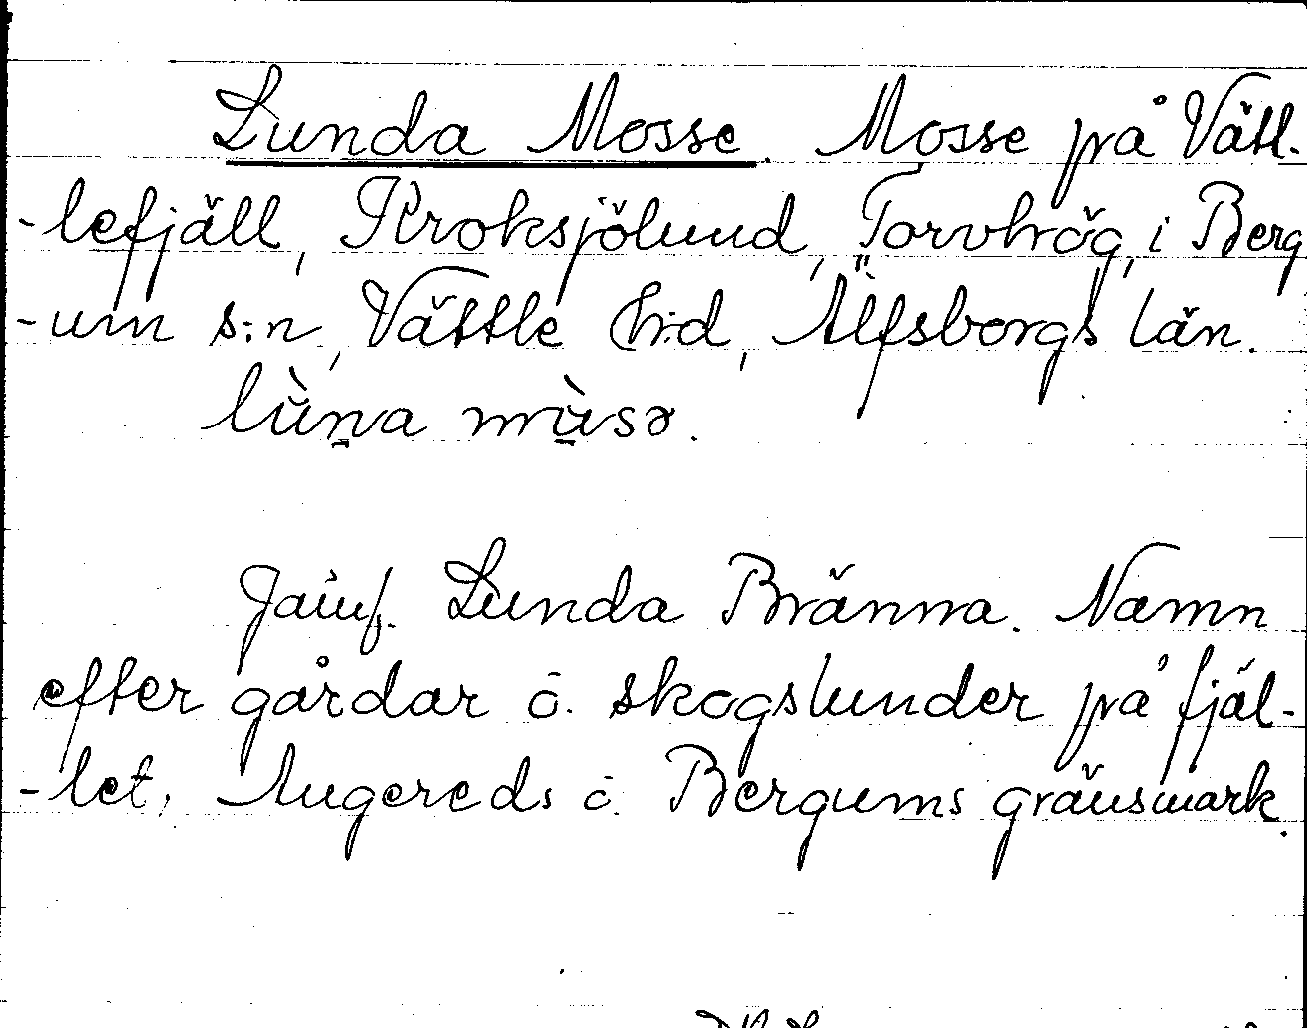 Lunda Mosse. Mosse på Vätt-
-lefjäll, Kroksjölund, Torvhög, i Berg
-um s:n, Vättle h:d, Älfsborgs län.
lùṉa mu̱̇̀sə.
Jämf. Lunda Bränna. Namn
efter gårdar ō. skogslunder på fjäl-
-let, Angereds ō. Bergums gränsmark.